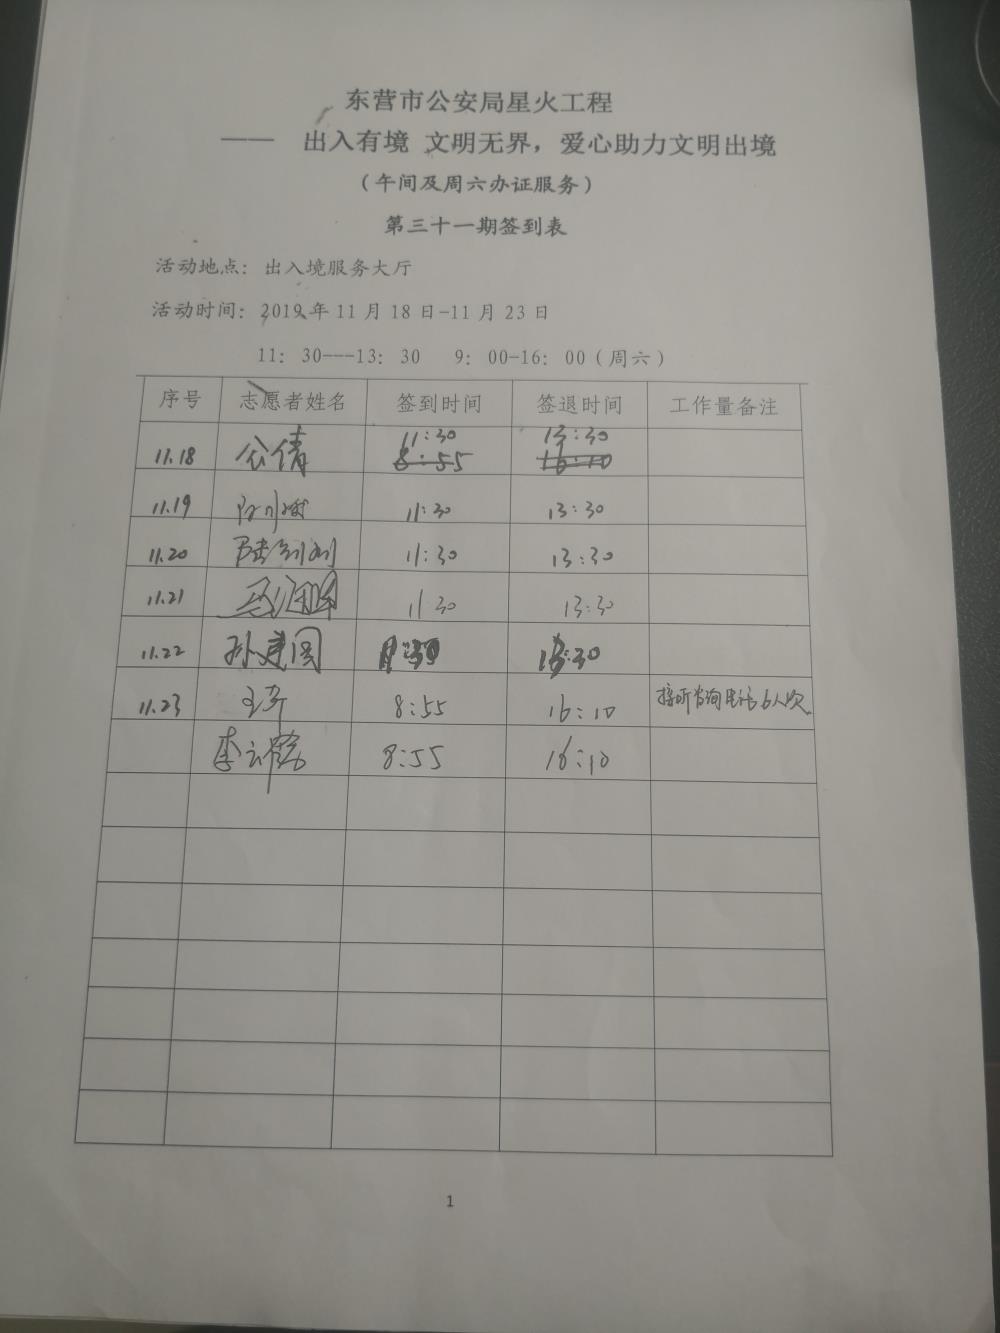 东营市公安局星火工程
—— 出入有境 文明无界，爱心助力文明出境
（午间及周六办证服务）
第三十一期签到表
活动地点：出入境服务大厅
活动时间：2019年11月18日-11月23日
11：30---13：30 9：00-16：00（周六）
序号 志愿者姓名 签到时间 签退时间 工作量备注
11:30 13:30
11.18 公倩 8:55 16:10
11.19 11:30 13:30
11.20 11:30 13:30
11.21 11 30 13:30
11.22 孙建国 11:30 13:30
11.23 王齐 8:55 16:10 接听咨询电话6人次
李云鹤 8:55 16:10
1